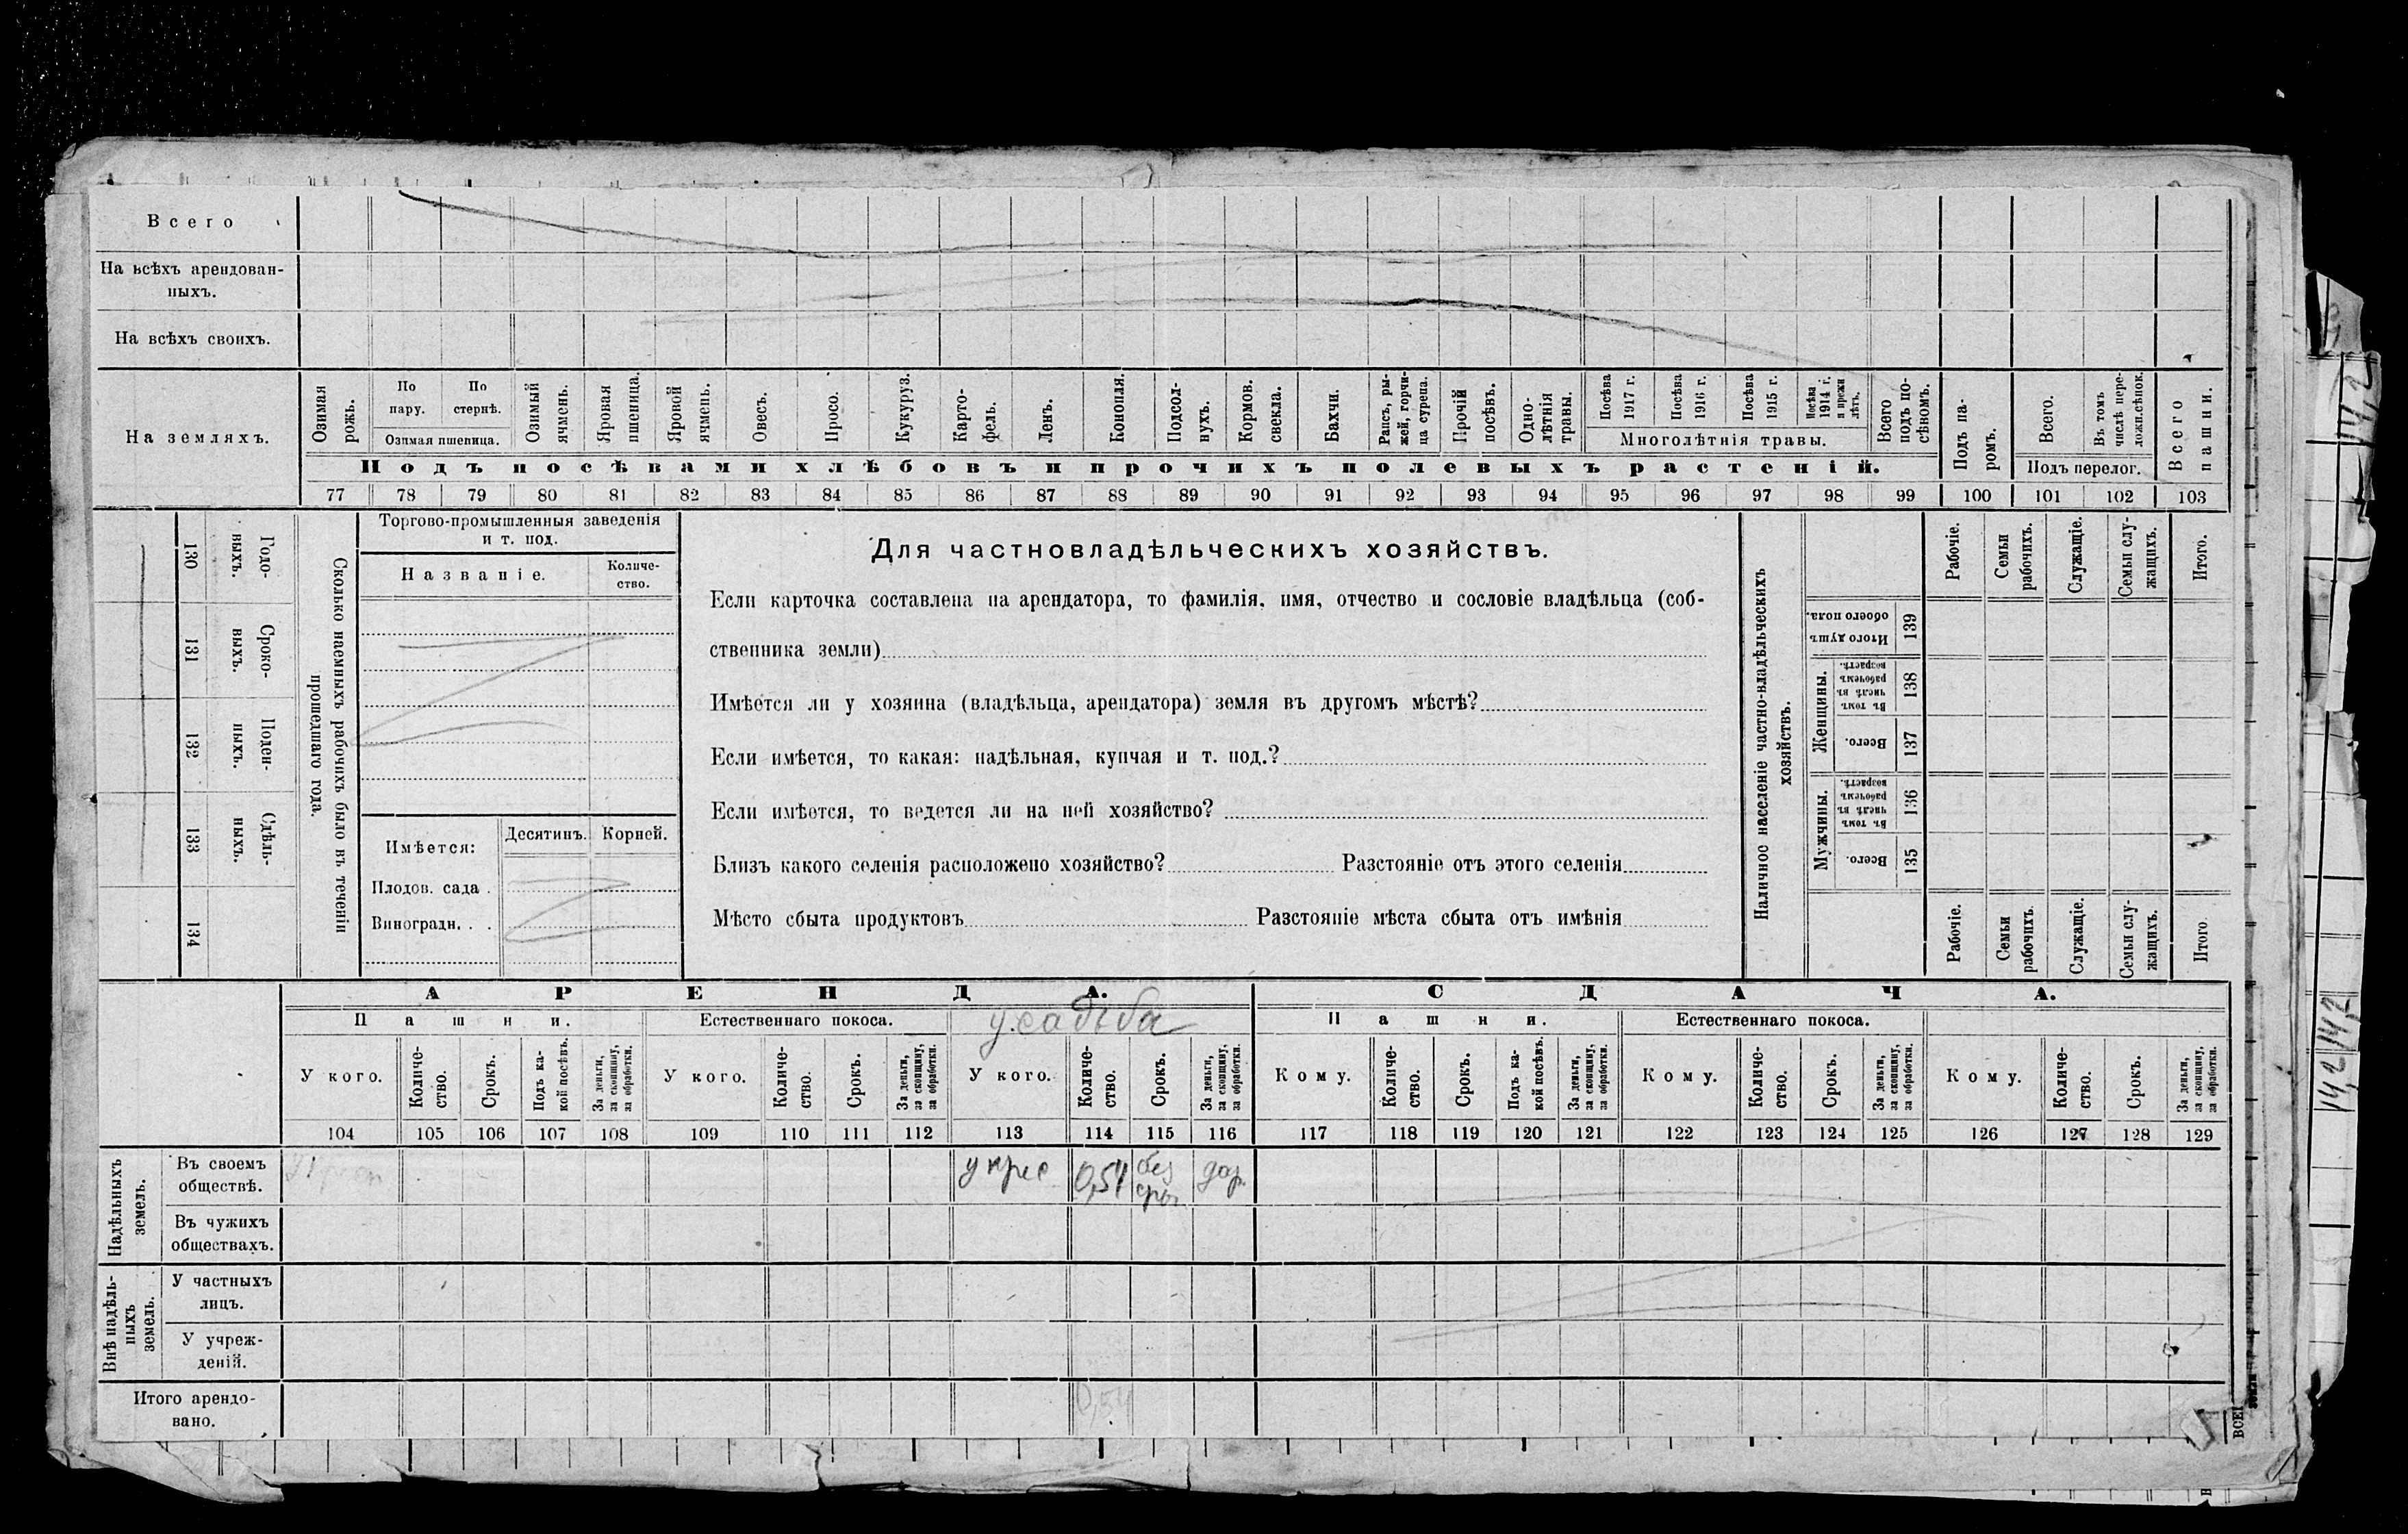 Всего
На всѣхъ арендован-
ныхъ.
На всѣхъ своихъ.
На земляхъ.
Озимая рожь.
По пару.
По стернѣ.
Озимая пшеница.
Озимый ячмень.
Яровая пшеница.
Яровой ячмень.
Овесъ.
Просо.
Кукуруз.
Карто-
фель.
Ленъ.
Конопля.
Подсол-
нухъ.
Кормов. свекла.
Бахчи.
Рапсъ, ры-
жей, горчи-
ца сурепа.
Прочій посѣвъ.
Одно-
лѣтнія травы.
Посѣва 1917 г.
Посѣва 1916 г.
Посѣва 1915 г.
Посѣва 1914 г. и прежн лѣтъ.
Многолѣтнія травы.
Всего подъ по-
сѣвомъ.
Подъ посѣвами хлѣбовъ и прочихъ полевыхъ растеній.
Подъ па-
ромъ.
Всего.
Въ томъ числѣ пере-
ложн.сѣнок.
Подъ перелог.
Всего пашни.
77 78 79 80 81 82 83 84 85 86 87 88 89 90 91 92 93 94 95 96 97 98 99 100 101 102 103
130 Годо-
выхъ.
131 Сроко-
выхъ.
132 Поден-
ныхъ.
133 Сдѣль-
ныхъ.
134
Сколько наемныхъ рабочихъ было въ теченіи
прошедшаго года.
Торгово-промышленныя заведенія
и т. под.
Названіе.
Количе-
ство.
Имѣется:
Десятинъ.
Корней.
Плодов. сада .
Виноградн. . .
Для частновладѣльческихъ хозяйствъ.
Если карточка составлена на арендатора, то фамилія, имя, отчество и сословіе владѣльца (соб-
ственника земли)
Имѣется ли у хозяина (владѣльца, арендатора) земля въ другомъ мѣстѣ?
Если имѣется, то какая: надѣльная, купчая и т. под.?
Если имѣется, то ведется ли на ней хозяйство?
Близъ какого селенія расположено хозяйство? Разстояніе отъ этого селенія
Мѣсто сбыта продуктовъ Разстояніе мѣста сбыта отъ имѣнія
Наличное населеніе частно-владѣльческихъ
хозяйствъ.
Рабочіе.
Семьи рабочихъ.
Служащіе.
Семьи слу-
жащихъ.
Итого.
Итого душъ обоего пола. 139
Женщины.
Въ томъ числѣ въ рабочемъ возрастѣ. 138
Всего. 137
Мужчины.
Въ томъ числѣ въ рабочемъ возрастѣ. 136
Всего. 135
Рабочіе.
Семьи рабочихъ
Служащіе.
Семьи слу-
жащихъ.
Итого
АРЕНДА.
СДАЧА.
Пашни.
Естественнаго покоса.
усадьба
Пашни.
Естественнаго покоса.
У кого.
Количе-
ство.
Срокъ.
Подъ ка-
кой посѣвъ.
За деньги, за скопщину, за обработки.
У кого.
Количе-
ство.
Срокъ.
За деньги, за скопщину, за обработки.
У кого.
Количе-
ство.
Срокъ.
За деньги, за скопщину, за обработки.
Кому.
Количе-
ство.
Срокъ.
Подъ ка-
кой посѣвъ.
За деньги, за скопщину, за обработки.
Кому.
Количе-
ство.
Срокъ.
За деньги, за скопщину, за обработки.
Кому.
Количе-
ство.
Срокъ.
За деньги, за скопщину, за обработки.
104 105 106 107 108 109 110 111 112 113 114 115 116 117 118 119 120 121 122 123 124 125 126 127 128 129
Надѣльныхъ земель.
Въ своемъ
обществѣ.
у крес 0,54 без
сроч дар
Въ чужихъ
обществахъ.
Внѣ надѣль-
ныхъ земель.
У частныхъ
лицъ.
У учреж-
деній.
Итого арендо-
вано.
0,54
14,2
14,2 14,2
ВСЕГ